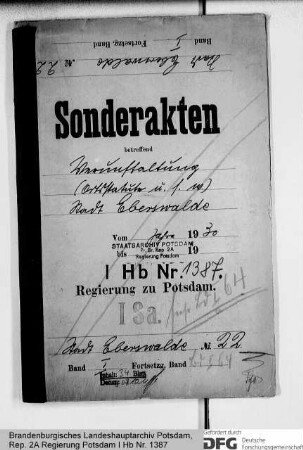 Band I
Fortsetzg. Band
Stadt Eberswalde
№ 22
Sonderakten
betreffend
Verunstaltung
(Ortsstatute u. s. w)
Stadt Eberswalde
Vom Jahre 1930
STAATSARCHIV POTSDAM
Pr. Br. Rep. 2A
Regierung Potsdam
bis 19
I Hb Nr. 1387.
Regierung zu Potsdam.
I Sa.
Stadt Eberswalde № 22
Band I Fortsetzg. Band
Inhalt: 34 Blatt
Datum:
Brandenburgisches Landeshauptarchiv Potsdam,
Rep. 2A Regierung Potsdam I Hb Nr. 1387
Gefördert durch
DFG Deutsche
Forschungsgemeinschaft